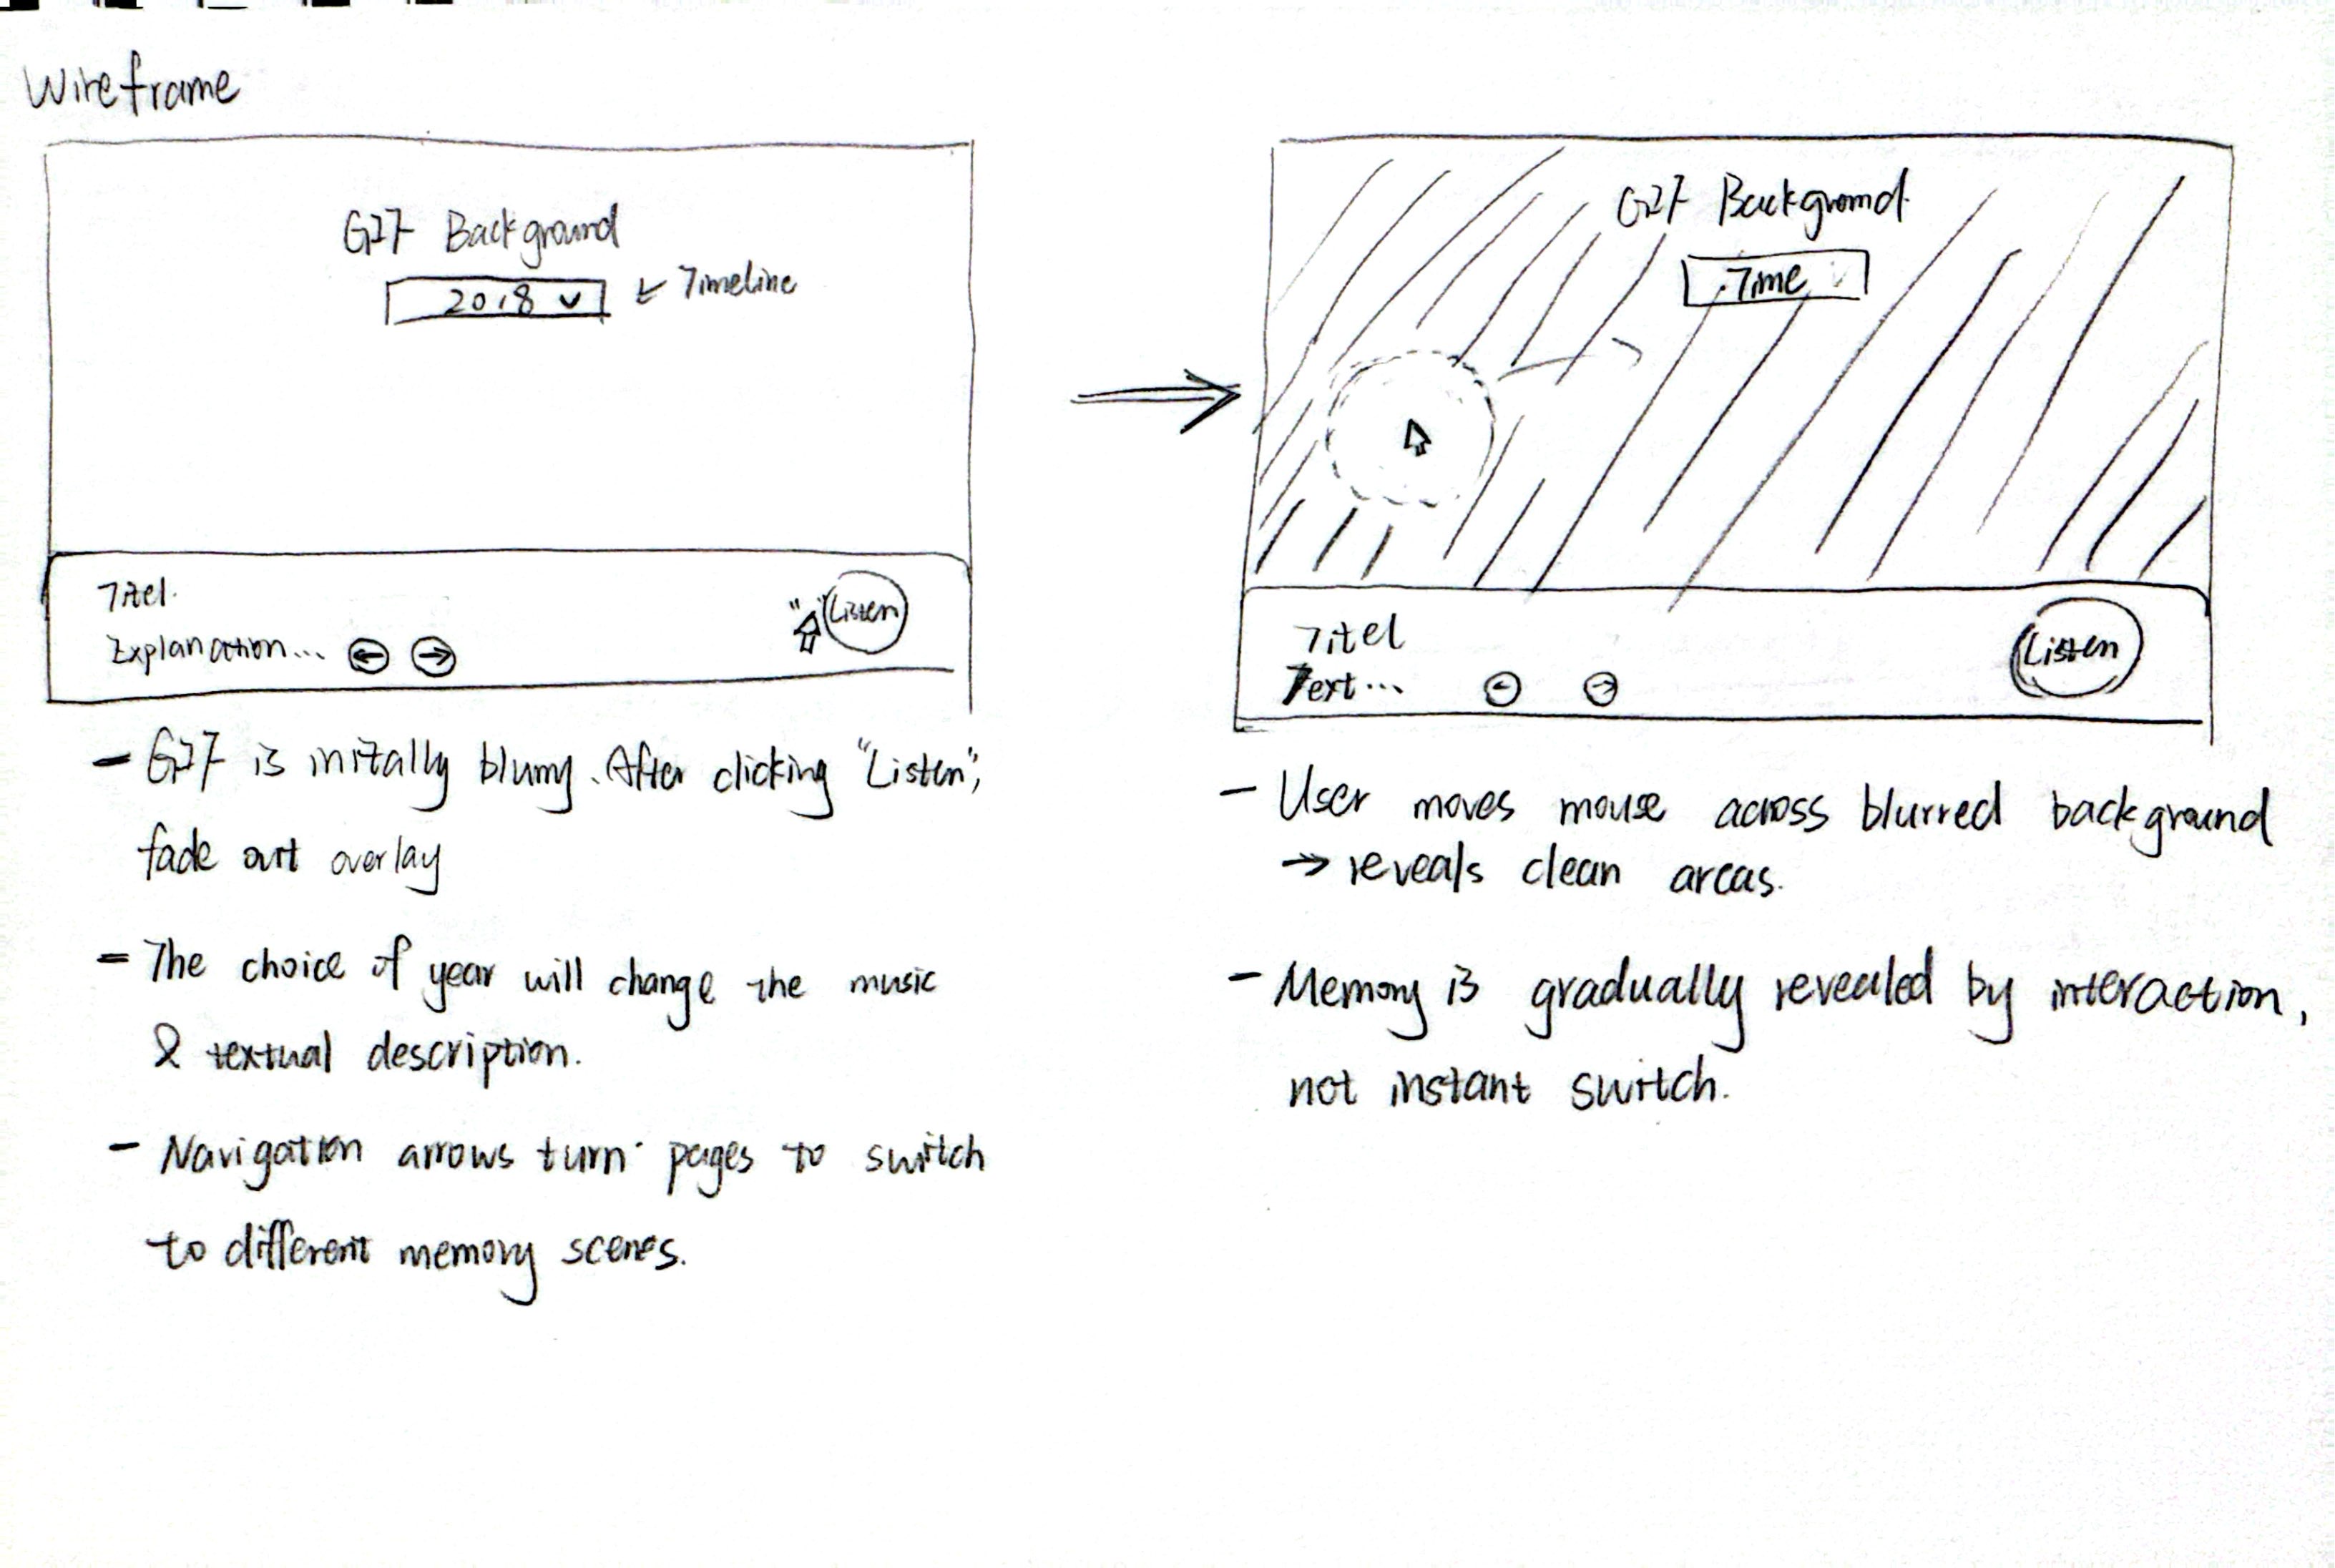 Wireframe
GIF Background
2018
Timeline
Titel.
Explanation...
Listen
- GIF is initally blurry. After clicking "Listen",
fade out overlay
- The choice of year will change the music
& textual description.
- Navigation arrows turn pages to switch
to different memory scenes.
GIF Background
Time
Titel
Text...
Listen
- User moves mouse across blurred background
→ reveals clean areas.
- Memory is gradually revealed by interaction,
not instant switch.